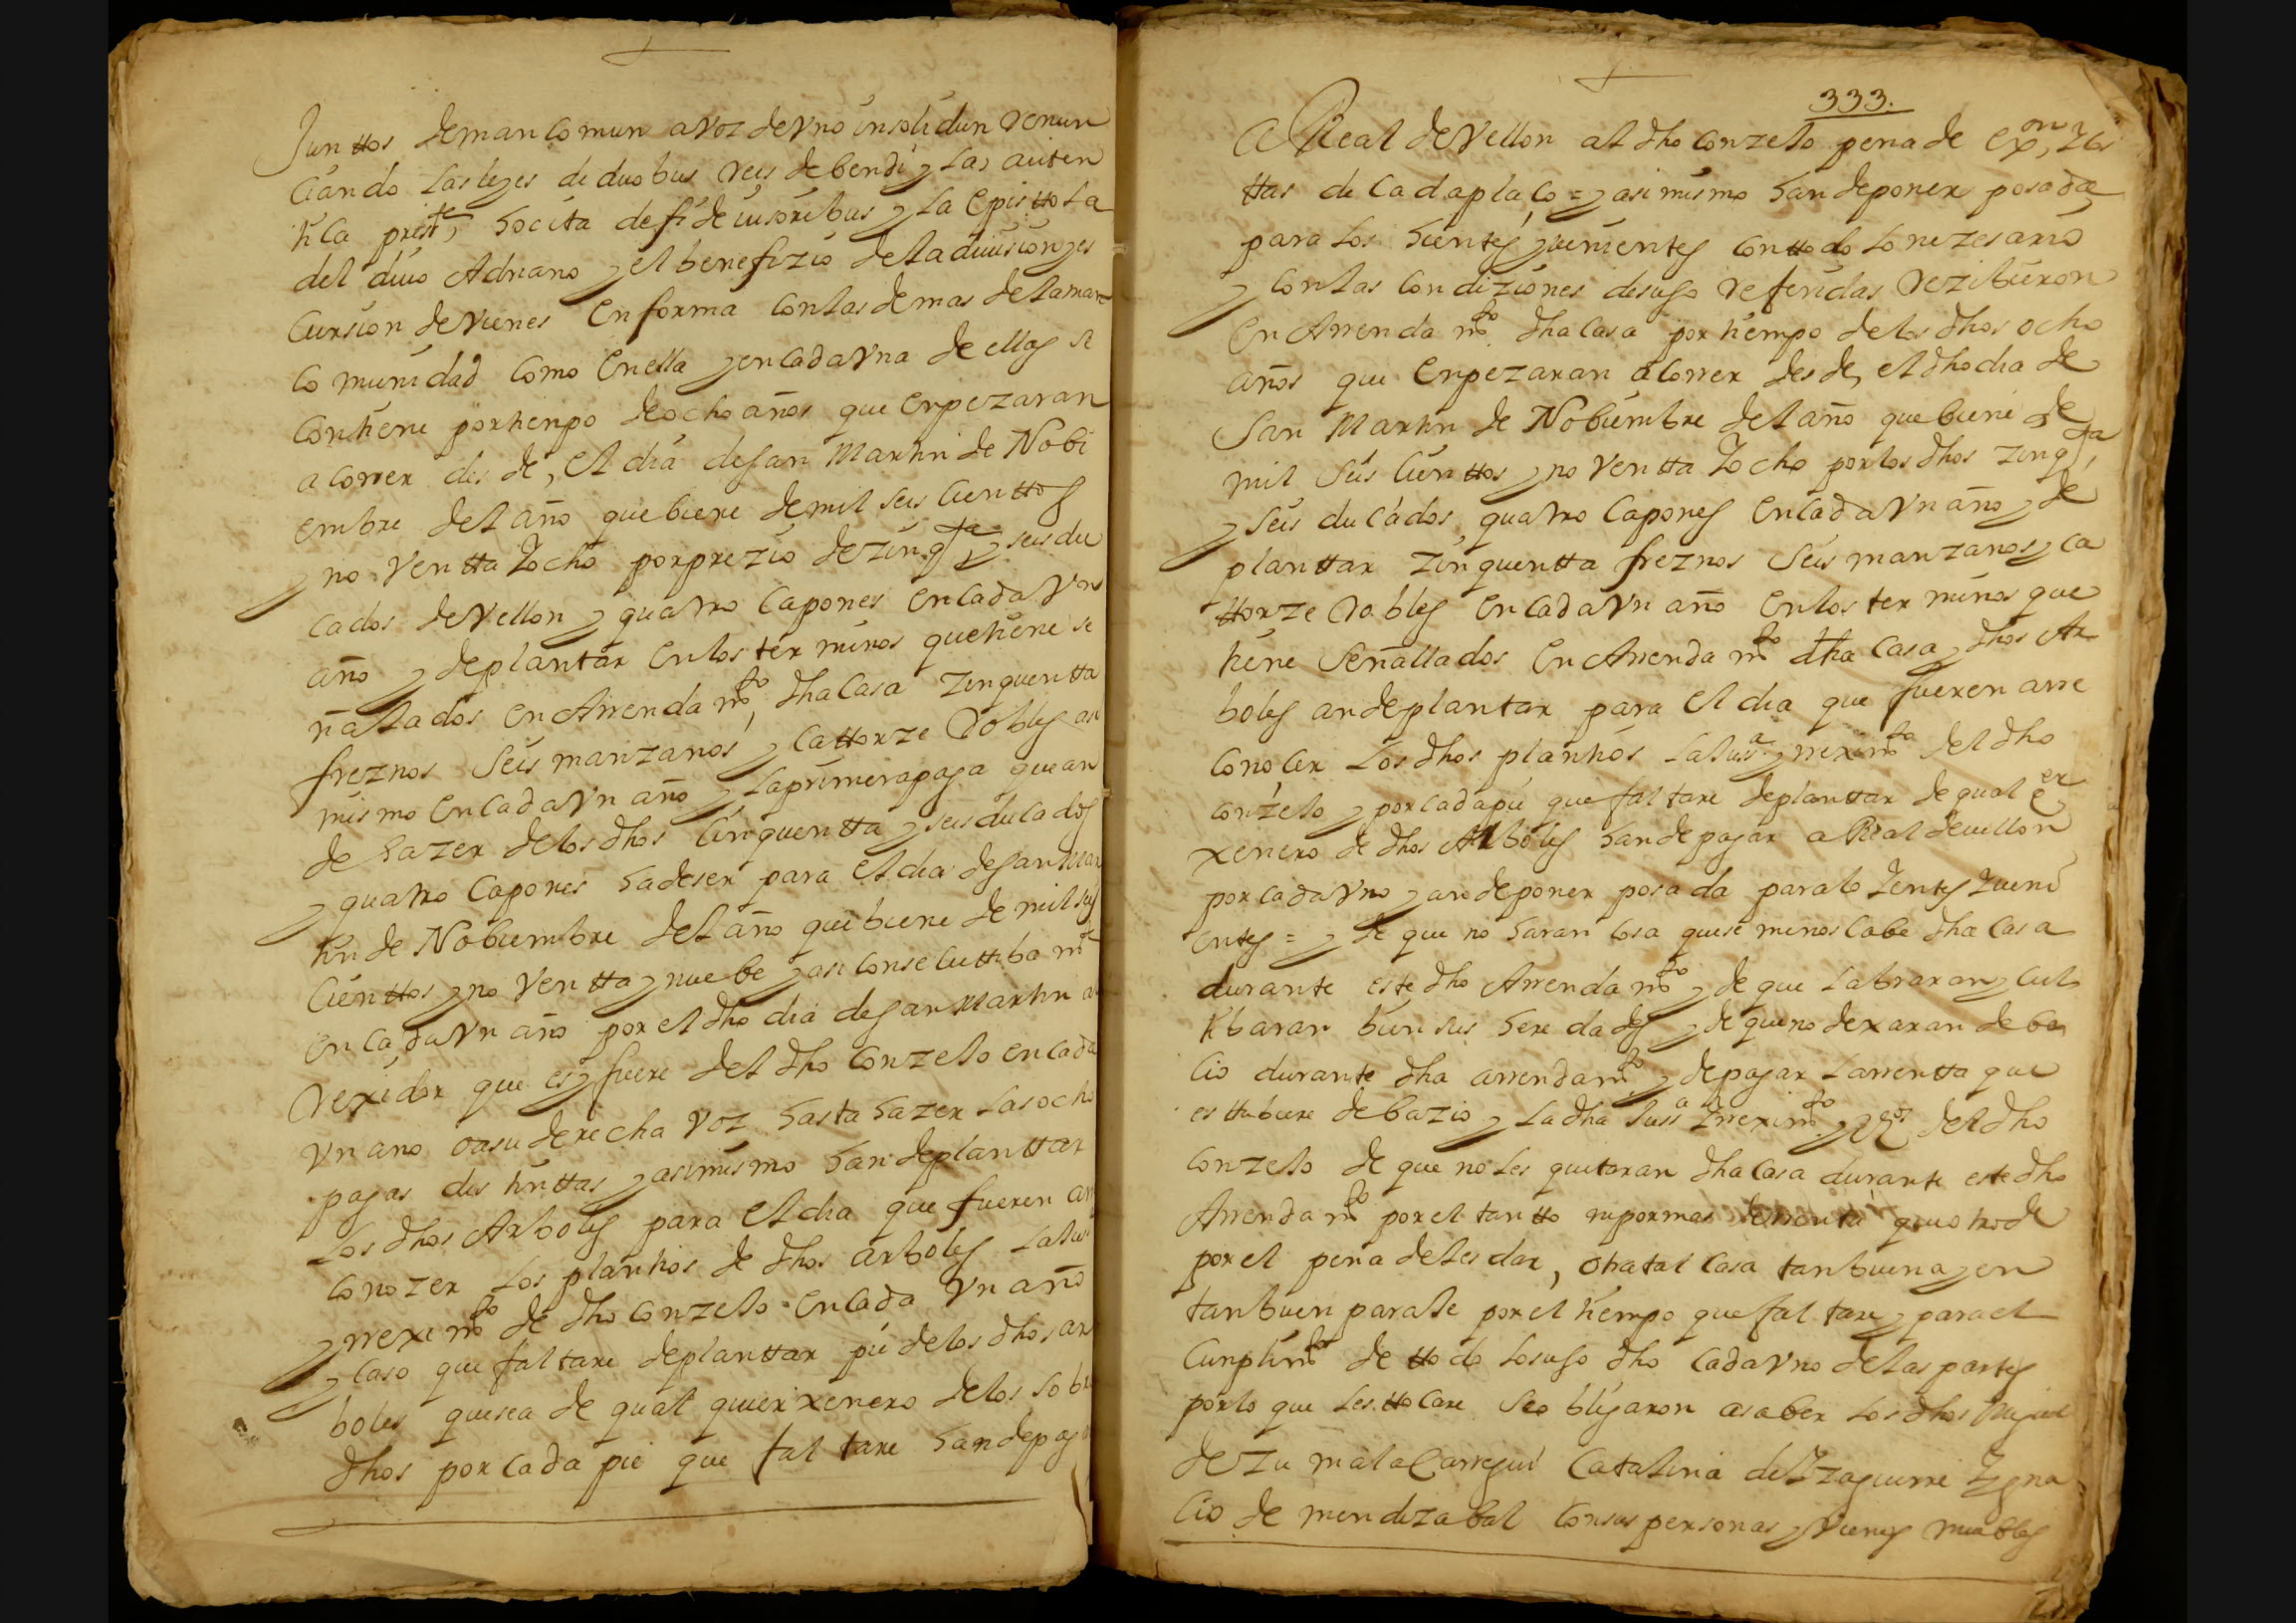 Junttos demancomun avoz devno insolidun renun
ciando lasleyes de duobus reis debendi y las auten
tica press.te hocita defide iusoribus y la Episttola
del diuo Adriano y el benefizio deladiuision y es
cursion devienes en forma conlas demas delaman
comunidad como en ella y encadavna de ellas se
contiene portienpo deocho años que enpezaran
acorrer des de, el dia desan Martin de Nobi
embre del año quebiene demil seis cienttos
y noventta Yocho porprezio dezinq.ta y seis du
cados devellon y quatro capones encada vn
año y deplantar enlos terminos quetiene se
ñalados en Arrendam.to dhacasa zinquentta
freznos seis manzanos y cattorze Robles asi
mismo encadavn año y laprimerapaga quean
de hazer delos dhos cinquentta y seisducados
y quatro capones hadeser para el dia desanmar
tin de Nobiembre del año quebiene de mil seis
cienttos y noventta y nuebe y asi consecuttibam.te
en cadavn año por el dho dia desanMartin al
rexidor que es y fuere del dho conzejo encada
vn ano oasu derecha voz hasta hazer lasocho
pagas distinttas y asimismo handeplanttar
los dhos Arboles para el dia que fueren arre
conozer los plantios de dhos arboles lajus.a
y rrexim.to de dho conzejo encada vn año
y caso que faltare deplanttar pie delos dhos ar
boles quesea de qual quier xenero delos sobre
dhos por cada pie que faltare handepagar
333.
a Real devellon al dho conzejo pena de ex.on y cos
ttas de cadaplaço = y asimismo handeponer posada
paralos hientes y uinientes con ttodo lonezesario
y conlas condiziones desuso referidas rezibieron
en Arrendam.to dhacasa por tiempo delos dhos ocho
años que enpezaran acorrer desde, el dhodia de
San Martin de Nobiembre del año quebiene de
mil seis cienttos y noventta Yocho porlos dhos zinq.ta
y seis ducados quatro capones encadavn año y de
planttar zinquentta freznos seis manzanos y ca
ttorze Robles encadavn año enlos terminos que
tiene señallados en Arrendam.to dha casa y dhos Ar
boles andeplantar para el dia que fueren arre
conocer los dhos plantios lajuss.a y rrexim.to del dho
conzejo y porcadapie que faltare deplanttar de qualq.er
xenero de dhos Arboles handepagar a Real deuellon
por cadavno y andeponer posada paralo Yentes Yueni
entes = y de que no haran cosa quese menoscabe dha casa
durante este dho Arrendam.to y de que labraran y cul
tibaran bien sus heredades y de queno dexaran de ba
cio durante dha arrendam.to y depagar larrentta que
esttubiere debazio y ladha juss.a Yrrexim.to y vez.os del dho
conzejo de que noles quitaran dhacasa durante este dho
Arrendam.to por el tantto nipormas derrenta queotrode
por el pena delesdar, otratal casa tanbuena y en
tanbuen paraje por el tiempo que faltare y parael
cunplim.to de ttodo losuso dho cadavno delas partes
porlo que les ttocare seobligaron asaber los dhos Miguel
de Zumalacarregui Catalina deYzaguirre Ygna
cio de mendizabal consus personas y vienes muebles